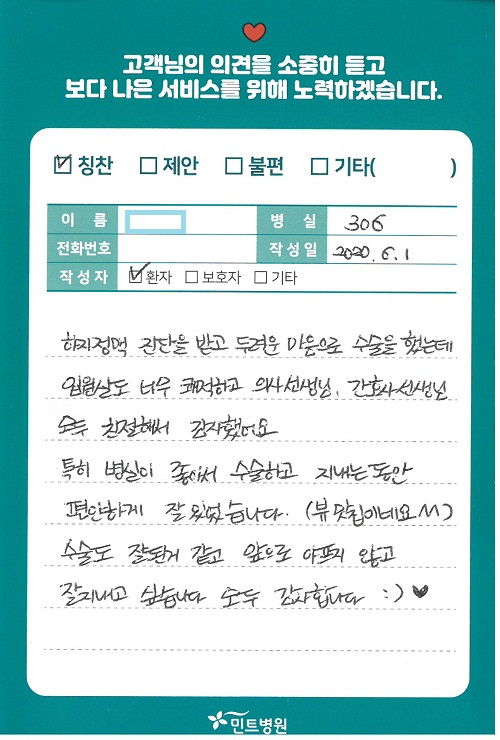 고객님의 의견을 소중히 듣고
보다 나은 서비스를 위해 노력하겠습니다.
☑ 칭찬 ☐ 제안 ☐ 불편 ☐ 기타( )
이 름 병 실 306
전화번호 작성일 2020. 6. 1
작성자 ☑ 환자 ☐ 보호자 ☐ 기타
하지정맥 진단을 받고 두려운 마음으로 수술을 했는데
입원실도 너무 쾌적하고 의사선생님, 간호사선생님
모두 친절해서 감사했어요
특히 병실이 좋아서 수술하고 지내는동안
편안하게 잘 있었습니다. (뷰 맛집이네요^^)
수술도 잘된거 같고 앞으로 아프지 않고
잘지내고 싶습니다 모두 감사합니다 :) ♥
민트병원